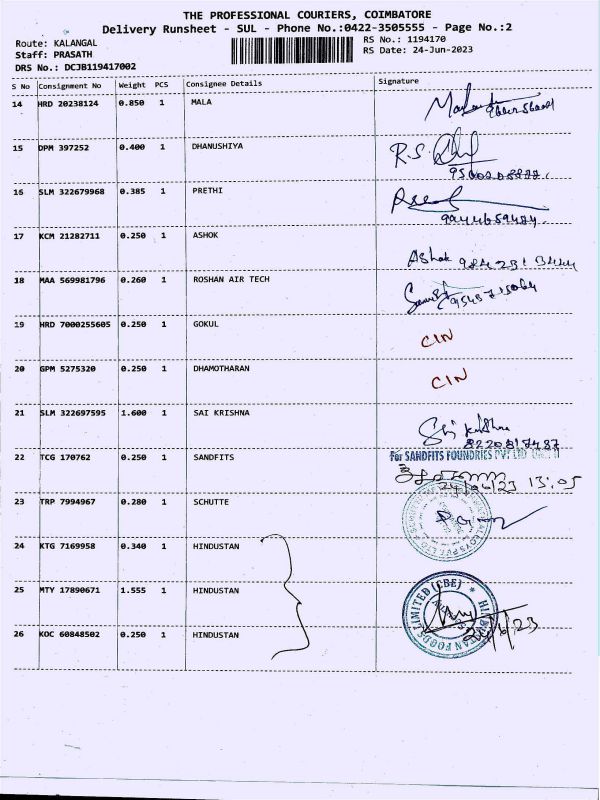 THE PROFESSIONAL COURIERS, COIMBATORE
Delivery Runsheet - SUL - Phone No.:0422-3505555 - Page No.:2
Route: KALANGAL
Staff: PRASATH
DRS No.: DCJB119417002
RS No.: 1194170
RS Date: 24-Jun-2023
S No Consignment No Weight PCS Consignee Details Signature
14 HRD 20238124 0.850 1 MALA
15 DPM 397252 0.400 1 DHANUSHIYA R.S.
16 SLM 322679968 0.385 1 PRETHI
9944659484.
17 KCM 21282711 0.250 1 ASHOK
Ashok
18 MAA 569981796 0.260 1 ROSHAN AIR TECH
19 HRD 7000255605 0.250 1 GOKUL
CIN
20 GPM 5275320 0.250 1 DHAMOTHARAN
CIN
21 SLM 322697595 1.600 1 SAI KRISHNA
8220817487
22 TCG 170762 0.250 1 SANDFITS
For SANDFITS FOUNDRIES PVT LTD
24/06/23 13.05
23 TRP 7994967 0.280 1 SCHUTTE
24 KTG 7169958 0.340 1 HINDUSTAN
25 MTY 17890671 1.555 1 HINDUSTAN
26 KOC 60848502 0.250 1 HINDUSTAN
HINDUSTAN FOODS LIMITED (CBE)
24/6/23